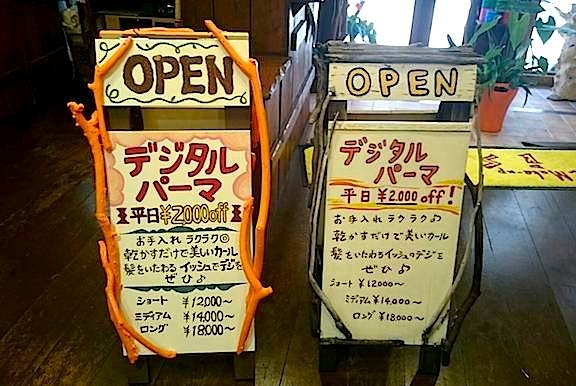 OPEN
デジタル
パーマ
平日¥2000off
お手入れ ラクラク◎
乾かすだけで美しいカール
髪をいたわる イッシュでデジを
ぜひ♪
ショート ¥12,000～
ミディアム ¥14,000～
ロング ¥18,000～
OPEN
デジタル
パーマ
平日 ¥2,000 off!
お手入れ ラクラク♪
乾かすだけで美しいカール
髪をいたわるイッシュのデジを
ぜひ♪
ショート ¥12000～
ミディアム ¥14,000～
ロング ¥18,000～